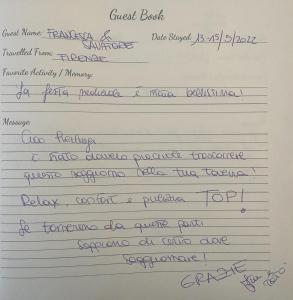 Guest Book
Guest Name: FRANCESCA & Date Stayed: 13-15/5/2022
SALVATORE
Travelled From: FIRENZE
Favorite Activity / Memory:
La festa medievale è stata bellissima!
Message:
Ciao
è stato davvero piacevole trascorrere
questo soggiorno nella tua taverna!
Relax, confort e pulizia TOP!
Se torneremo da queste parti
sappiamo di certo dove
soggiornare!
GRAZIE